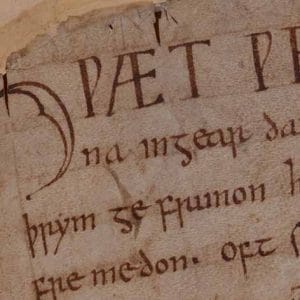 HǷÆT Ƿ
na ingear da
þrym ge frunon h
fre medon. oft s